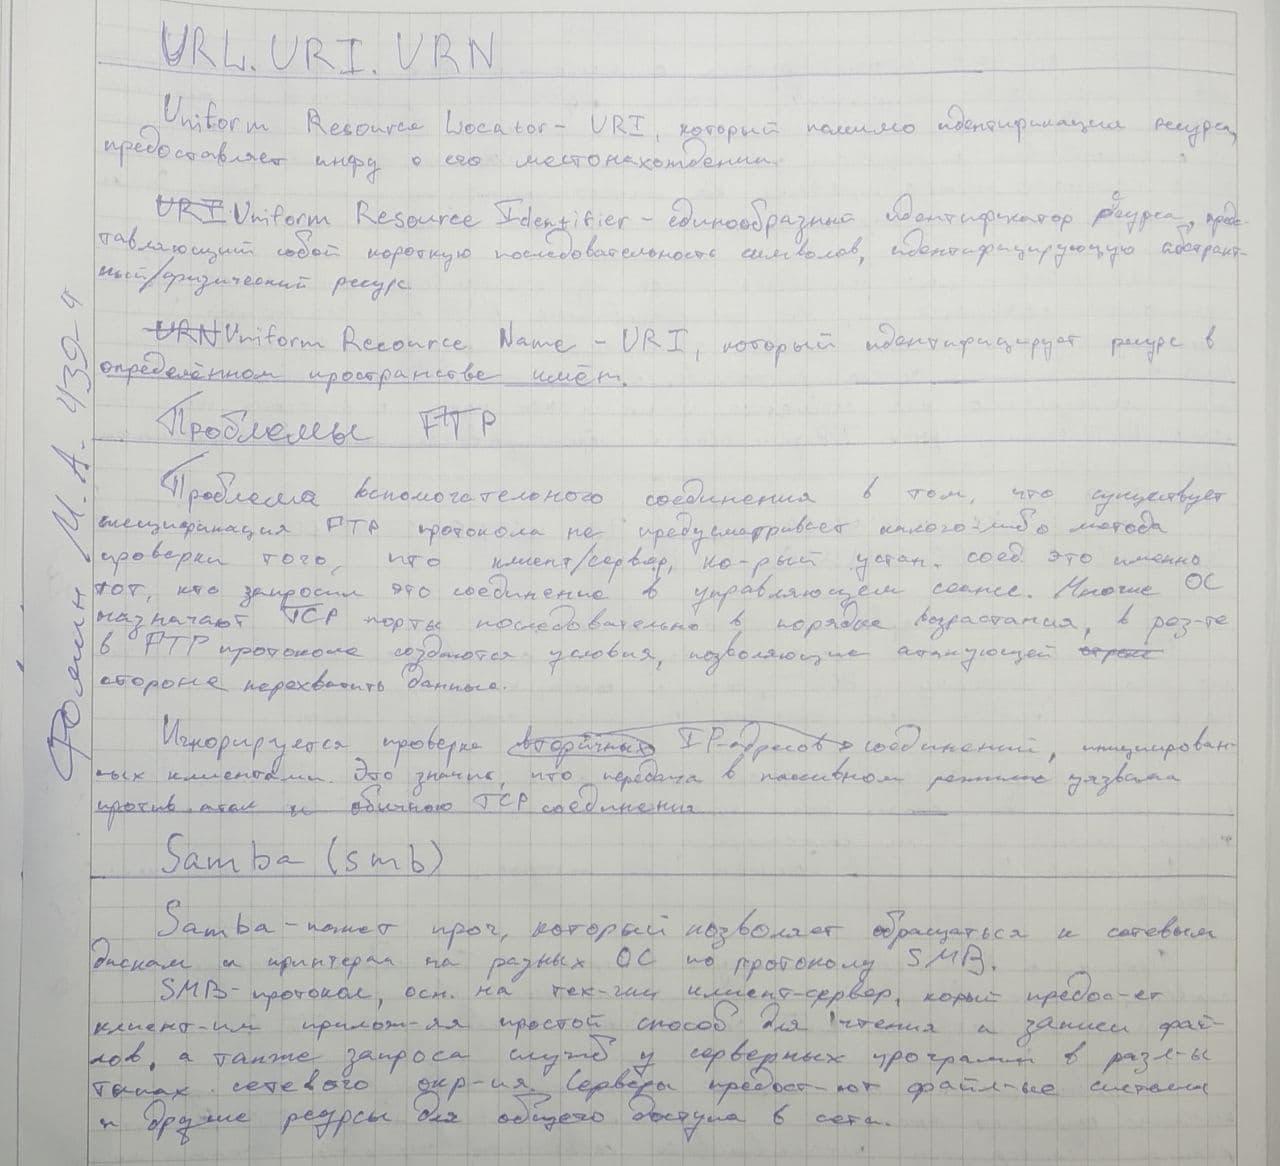 URL. URI. URN
Uniform Resource Locator - URI, который помимо идентификации ресурса,
предоставляет инфу о его местонахождении.
URI Uniform Resource Identifier - единообразный идентификатор ресурса, предс-
тавляющий собой короткую последовательность символов, идентифицирующую абстракт-
ный/физический ресурс
URN Uniform Recource Name - URI, который идентифицирует ресурс в
определённом пространстве имён.
Проблемы FTP
Проблема вспомогательного соединения в том, что существует
спецификация FTP протокола не предусматривает какого-либо метода
проверки того, что клиент/сервер, ко-рый устан. соед это именно
тот, кто запросил это соединение в управляющем сеансе. Многие ОС
назначают TCP порты последовательно в порядке возрастания, в рез-те
в FTP протоколе создаются условия, позволяющие атакующей
стороне перехватить данные.
Игнорируется проверка вторичных IP-адресов соединений, инициирован-
ных клиентами. Это значит, что передача в пассивном режиме уязвима
против атак и обычного TCP соединения
Samba (smb)
Samba - пакет прог, который позволяет обращаться к сетевым
дискам и принтерам на разных ОС по протоколу SMB.
SMB - протокол, осн. на тех-гии клиент-сервер, корый предос-ет
клиент-им прилож-ям простой способ для чтения и записи фай-
лов, а также запроса служб у серверных программ в разл-ых
типах сетевого окр-ия. Серверы предост-ют файл-ые системы
и другие ресурсы для общего доступа в сети.
Фомин М. А. 439-4